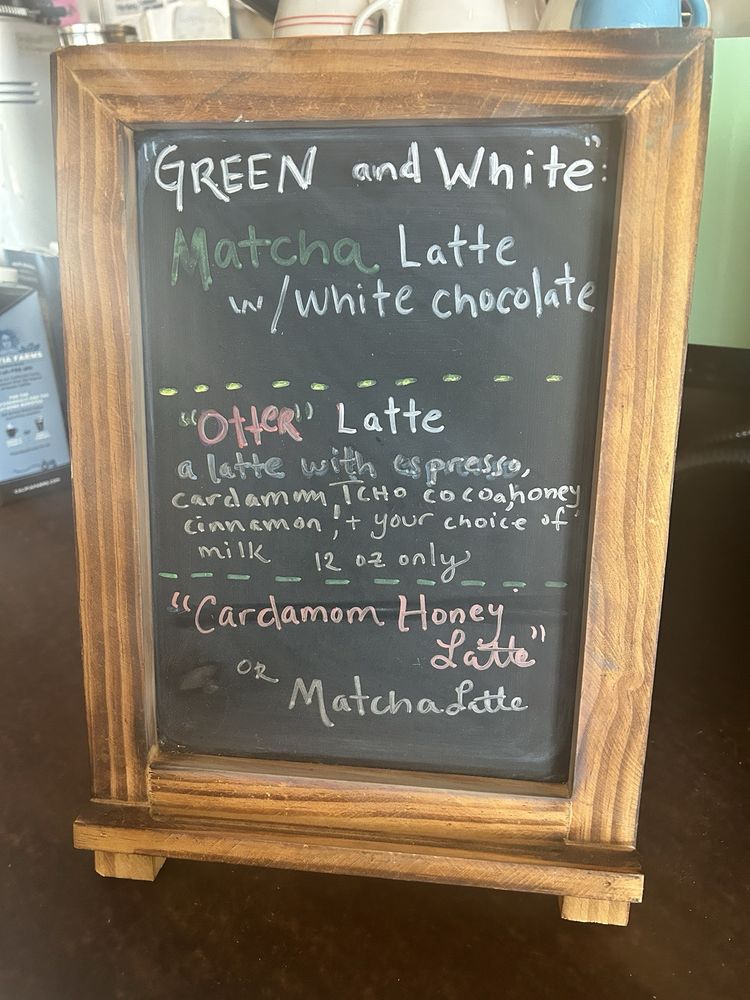 "GREEN and White":
Matcha Latte
w/White chocolate
"Otter" Latte
a latte with espresso,
cardamom, TCHO cocoa, honey
cinnamon, + your choice of
milk 12 oz only
"Cardamom Honey
Latte"
OR
Matcha Latte
TIA FARMS